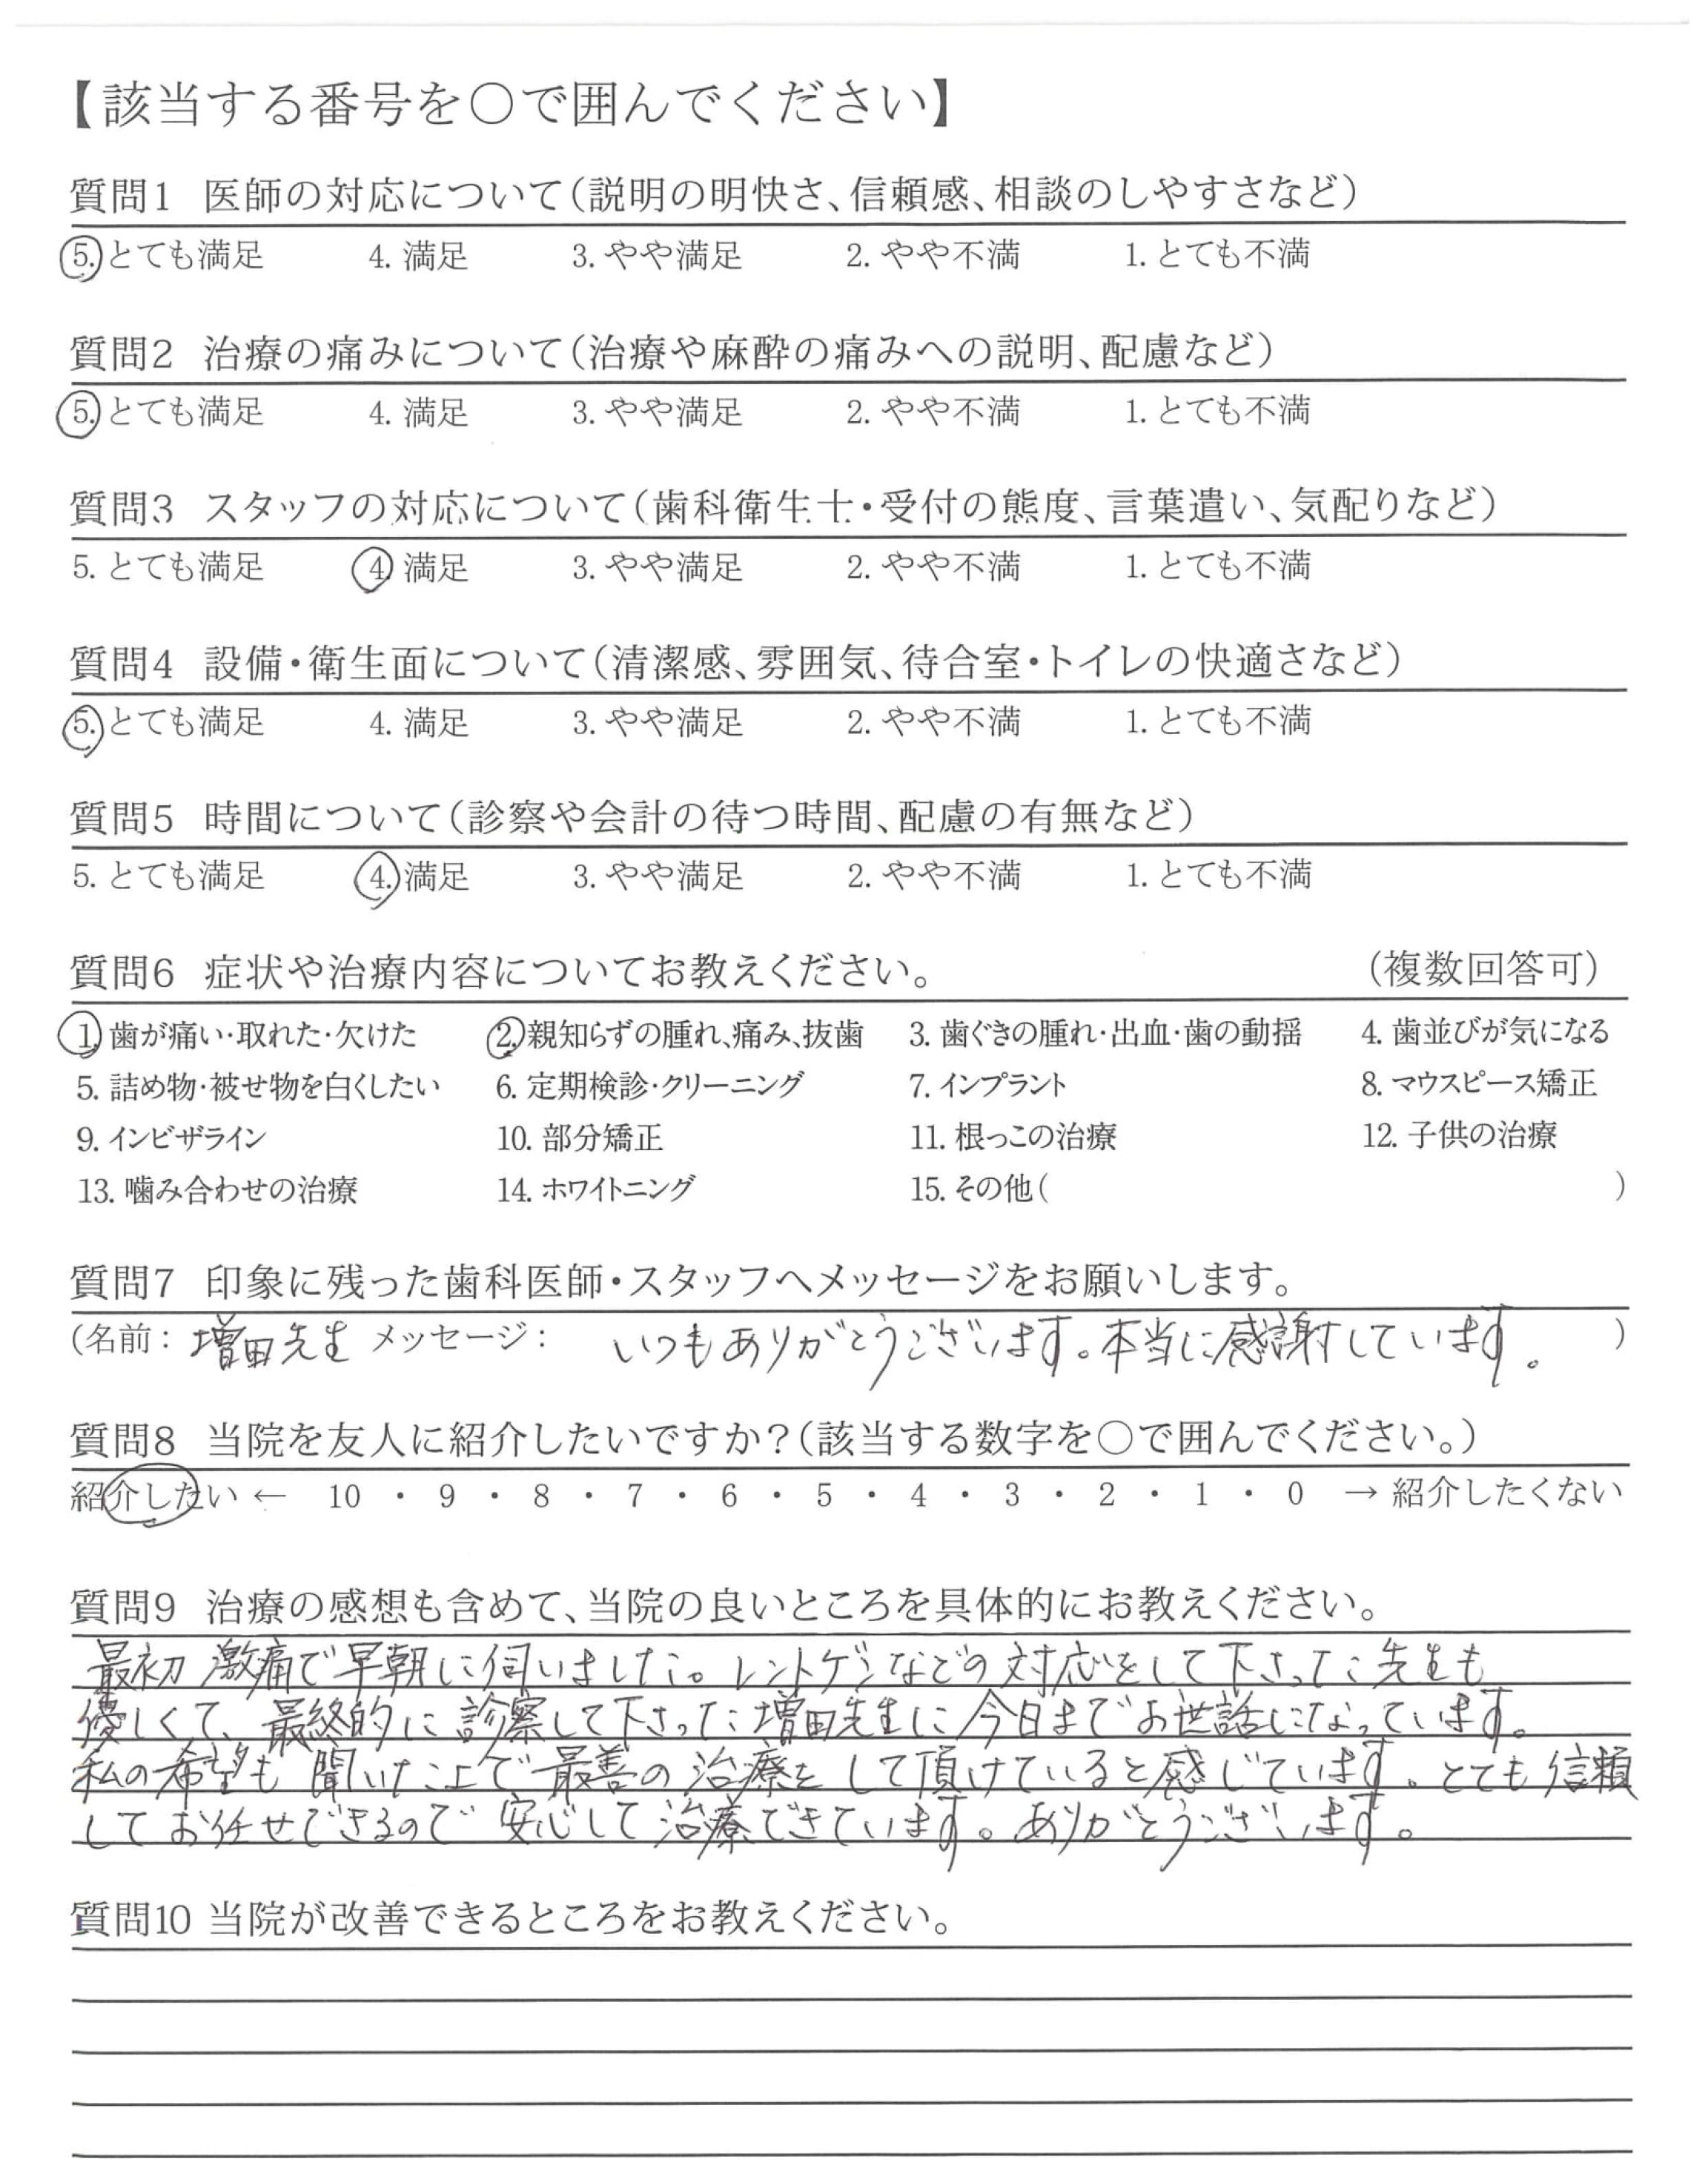 【該当する番号を○で囲んでください】
質問1 医師の対応について(説明の明快さ、信頼感、相談のしやすさなど)
5. とても満足 4. 満足 3. やや満足 2. やや不満 1. とても不満
質問2 治療の痛みについて(治療や麻酔の痛みへの説明、配慮など)
5. とても満足 4. 満足 3. やや満足 2. やや不満 1. とても不満
質問3 スタッフの対応について(歯科衛生士・受付の態度、言葉遣い、気配りなど)
5. とても満足 4. 満足 3. やや満足 2. やや不満 1. とても不満
質問4 設備・衛生面について(清潔感、雰囲気、待合室・トイレの快適さなど)
5. とても満足 4. 満足 3. やや満足 2. やや不満 1. とても不満
質問5 時間について(診察や会計の待つ時間、配慮の有無など)
5. とても満足 4. 満足 3. やや満足 2. やや不満 1. とても不満
質問6 症状や治療内容についてお教えください。 (複数回答可)
1. 歯が痛い・取れた・欠けた 2. 親知らずの腫れ、痛み、抜歯 3. 歯ぐきの腫れ・出血・歯の動揺 4. 歯並びが気になる
5. 詰め物・被せ物を白くしたい 6. 定期検診・クリーニング 7. インプラント 8. マウスピース矯正
9. インビザライン 10. 部分矯正 11. 根っこの治療 12. 子供の治療
13. 噛み合わせの治療 14. ホワイトニング 15. その他( )
質問7 印象に残った歯科医師・スタッフへメッセージをお願いします。
(名前: 増田先生 メッセージ: いつもありがとうございます。本当に感謝しています。 )
質問8 当院を友人に紹介したいですか?(該当する数字を○で囲んでください。)
紹介したい ← 10 ・ 9 ・ 8 ・ 7 ・ 6 ・ 5 ・ 4 ・ 3 ・ 2 ・ 1 ・ 0 → 紹介したくない
質問9 治療の感想も含めて、当院の良いところを具体的にお教えください。
最初 激痛で早朝に伺いました。レントゲンなどの対応をして下さった先生も
優しくて、最終的に診察して下さった増田先生に今日までお世話になっています。
私の希望も聞いた上で最善の治療をして頂けていると感じています。とても信頼
してお任せできるので安心して治療できています。ありがとうございます。
質問10 当院が改善できるところをお教えください。